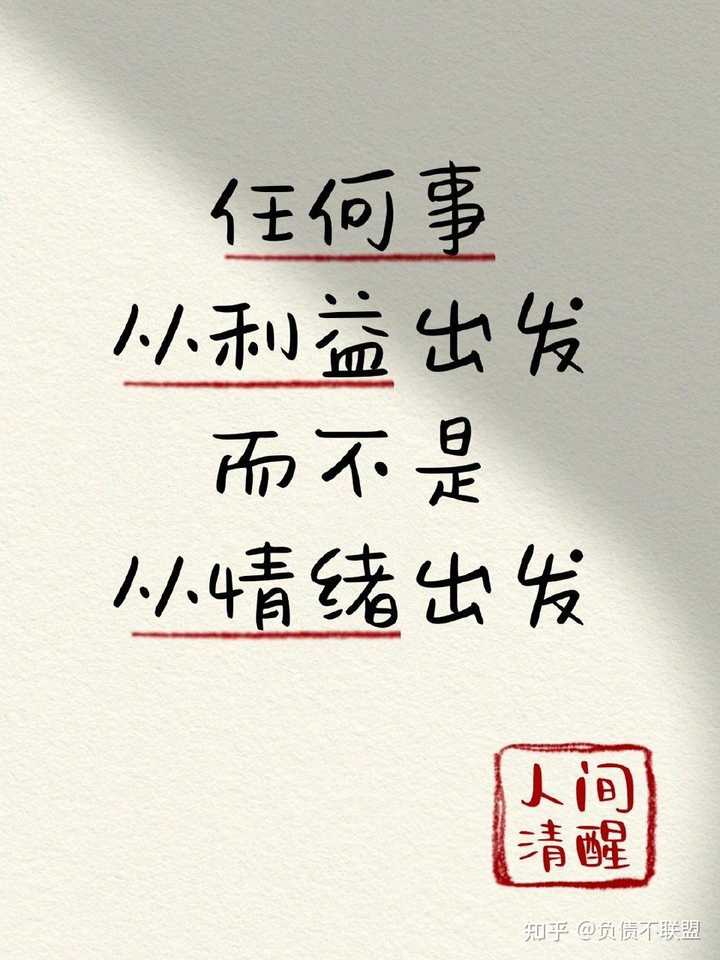 任何事
从利益出发
而不是
从情绪出发
人间
清醒
知乎 @负债不联盟